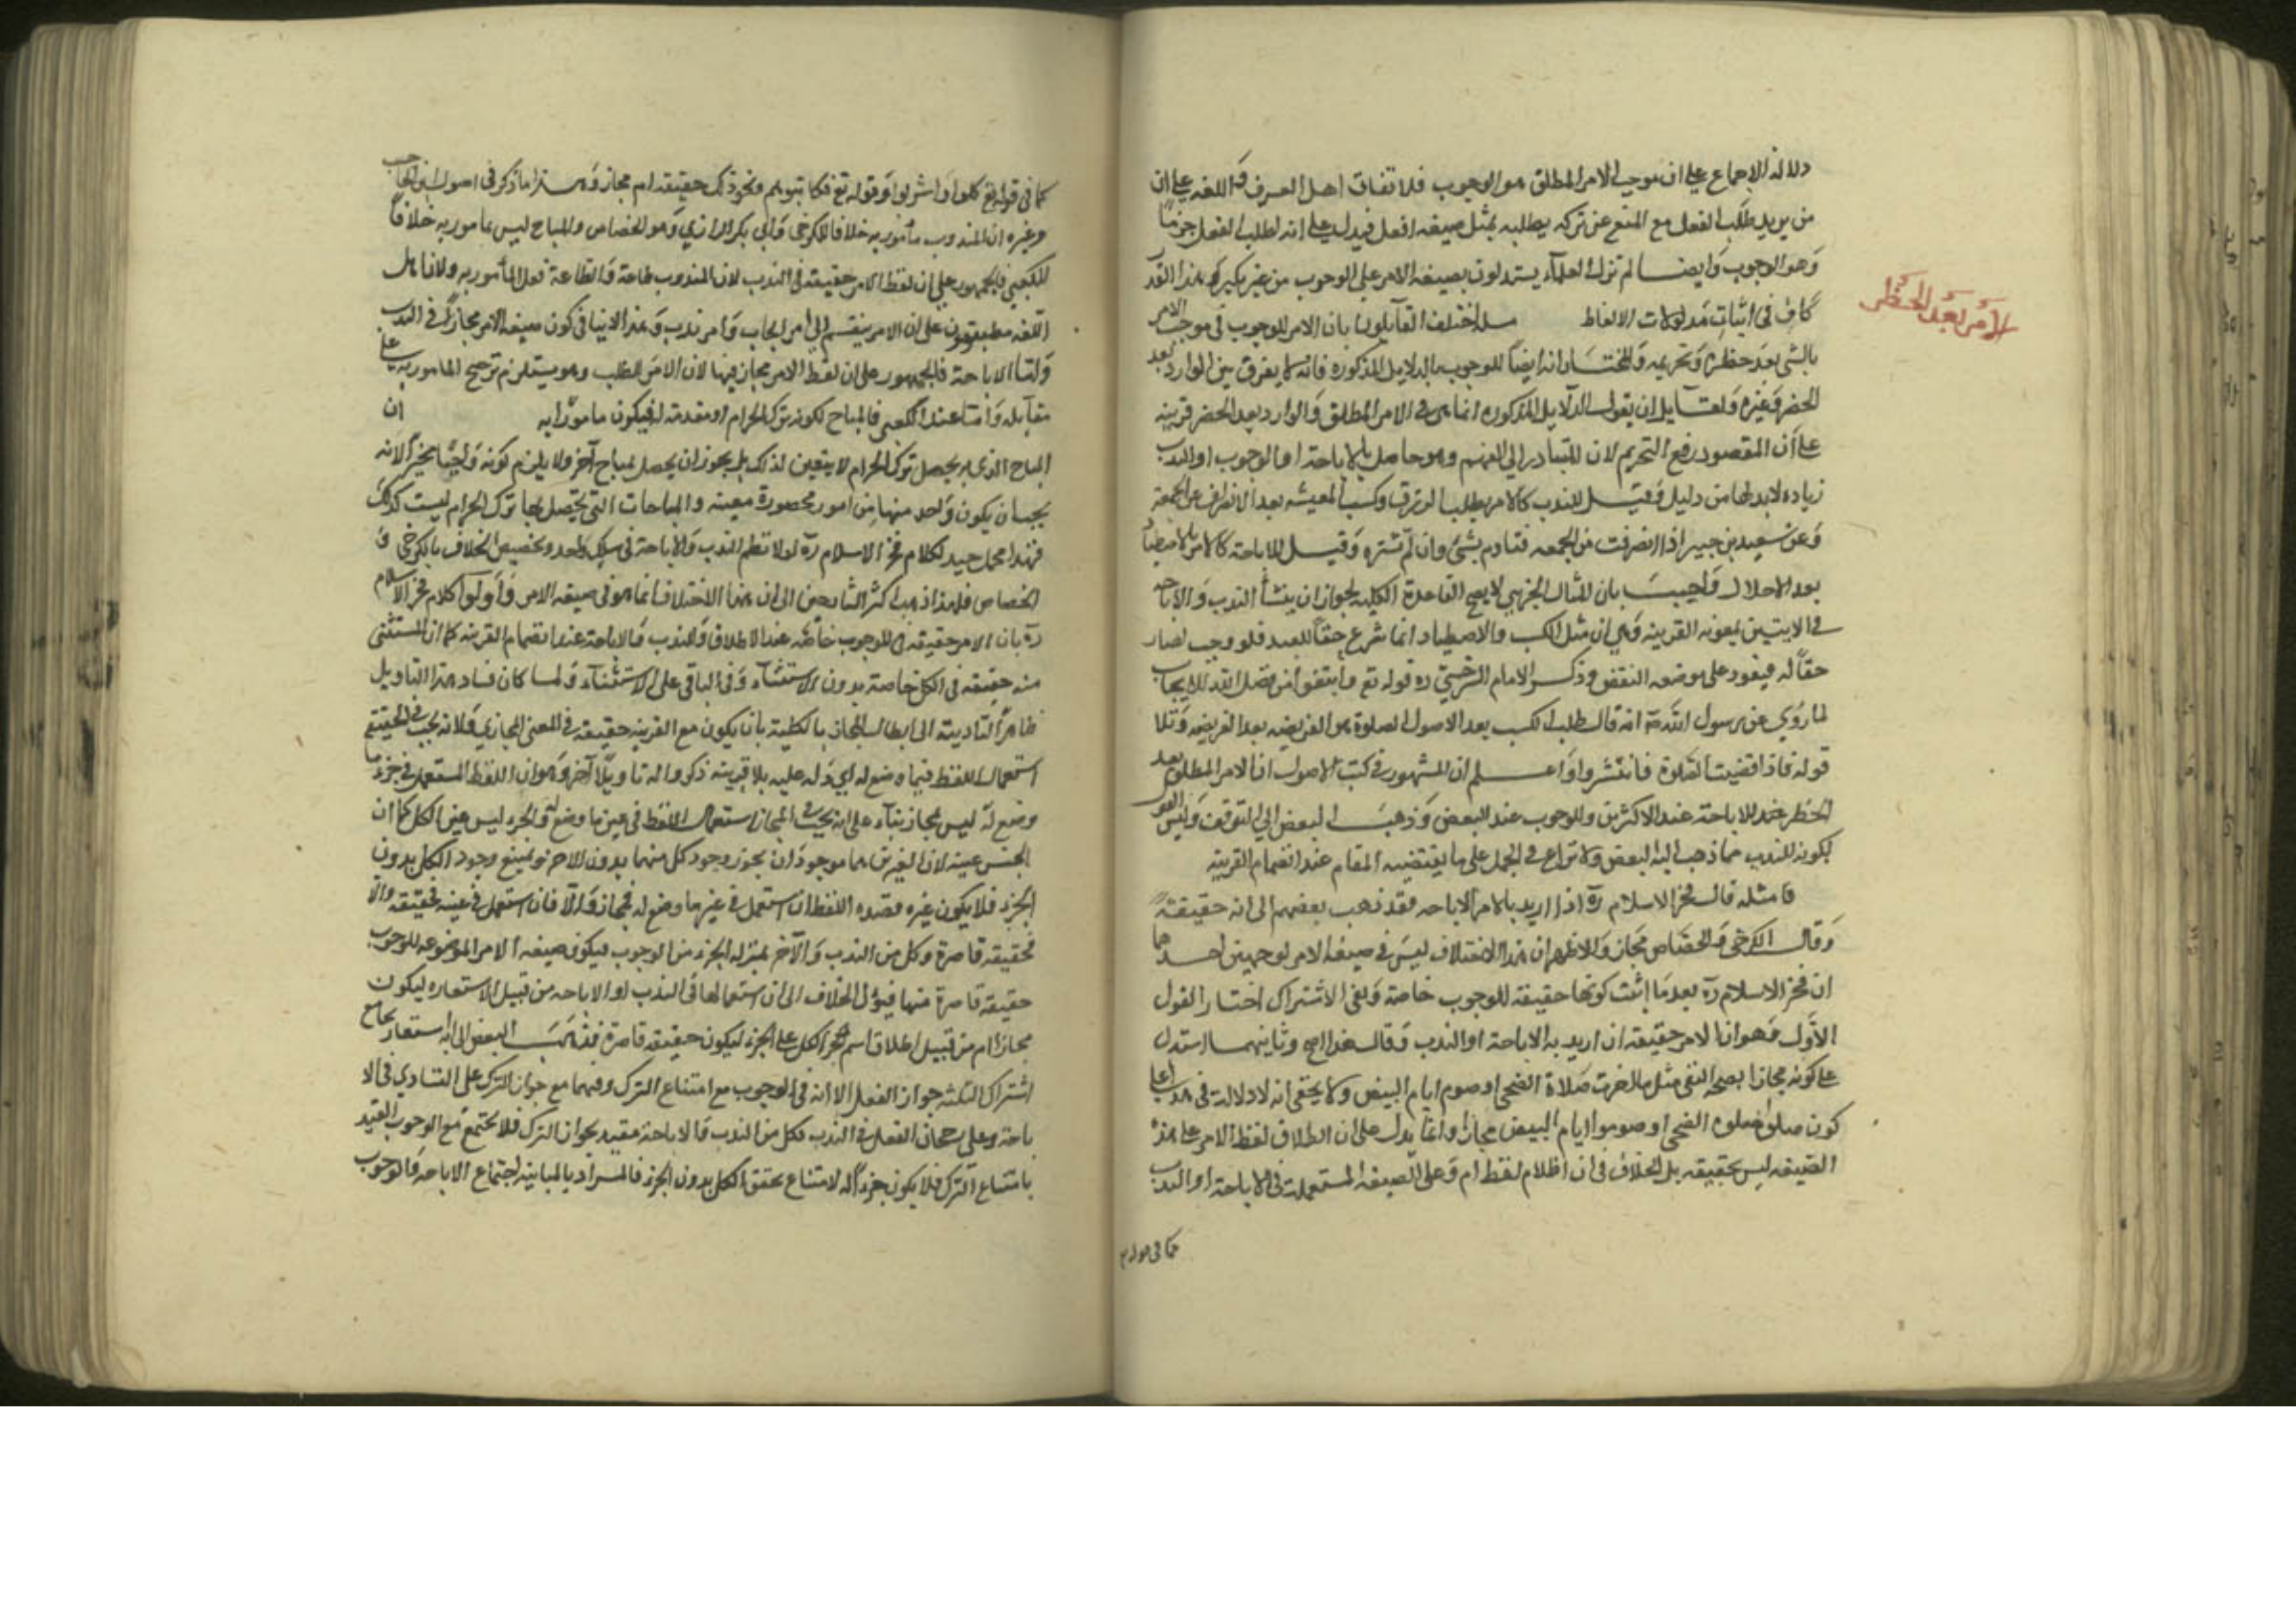 دلالة الاجماع على ان موجب الامر المطلق هو الوجوب فلاتفاق اهل العرف و اللغه على ان
من يريد طلب الفعل مع المنع عن تركه يطلبه بمثل صيغه افعل فيدل على انه لطلب الفعل جزما
وهو الوجوب وايضا لم تزل العلماء يستدلون بصيغه الامر على الوجوب من غير نكير وهذا القدر
كاف فى اثبات مدلولات الالفاظ مسله اختلف القايلون بان الامر للوجوب فى موجب الامر
الامر بعد الحظر
بالشى بعد حظره وتحريمه والمختار انه ايضا للوجوب بالدلايل المذكوره فانها لا يفرق بين الوارد بعد
الحضر وغيره ولقايل ان يقول الدلايل المذكوره انما هى فى الامر المطلق والوارد بعد الحضر قرينه
على ان المقصود رفع التحريم لان المتبادر الى الفهم وهو حاصل بالاباحة او الوجوب او الندب
زياده لابد لها من دليل وقيل للندب كالامر بطلب الرزق وكسب المعيشه بعد الانصراف عن الجمعة
وعن سعيد بن جبير اذا انصرفت من الجمعه فساوم بشئ وان لم تشتره وقيل للاباحة كالامر بالاصطياد
بعد الاحلال واجيب بان المثال الجزيى لا يصح القاعدة الكليه لجواز ان ينشأ الندب والاباحه
فى الايتين بمعونه القرينه وهى ان مثل الكسب والاصطياد انما شرع حقا للعبد فلو وجب لصار
حقا له فيعود على موضعه النقض وذكر الامام السرخسي ره قوله تع وابتغوا من فضل الله للايجاب
لما روي عن رسول الله انه قال طلب الكسب بعد الاصول الصلوة هو الفريضه بعد الفريضه وتلا
قوله فاذا قضيت الصلوة فانتشروا واعلم ان المشهور فى كتب الاصول ان الامر المطلق بعد
الحظر عند للاباحة عند الاكثرين وللوجوب عند البعض وذهب البعض الي التوقف وليس القول
بكونه للندب مما ذهب اليه البعض ولا نزاع فى الحمل على ما يقتضيه المقام عند انضمام القرينه
فا مثله قال فخر الاسلام ره اذا اريد بالامر الاباحه فقد ذهب بعضهم الى انه حقيقة
وقال الكرخى والجصاص مجاز والاظهر ان هذا الاختلاف ليس فى صيغه الامر لوجهين احدهما
ان فخر الاسلام ره بعد ما اثبت كونها حقيقة للوجوب خاصة ونفى الاشتراك اختار القول
الاول وهو ان الامر حقيقه ان اريد به الاباحة او الندب وقال هذا اصح وثانيهما استدل
على كونه مجازا بصحه النفى مثل ما امرت صلاة الضحى او صوم ايام البيض ولا يخفى انه لا دلالة فى هذا على
كون صلوا صلوه الضحى او صوموا ايام البيض مجازا وانما يدل على ان اطلاق لفظ الامر على هذه
الصيغه ليس بحقيقه بل الخلاف فى ان اطلاق لفظ ام ر على الصيغه المستعملة فى الاباحة او الندب
كما فى قوله
كما فى قوله تع كلوا واشربوا وقوله تع فكاتبوهم ونحو ذلك حقيقه ام مجاز وهذا ما ذكر فى اصول ابن الحاجب
وغيره ان المندوب مأمور به خلافا للكرخى وابي بكر الرازي وهو الجصاص والمباح ليس بمامور به خلافا
للكعبي فالجمهور على ان لفظ الامر حقيقة فى الندب لان المندوب طاعة والطاعة فعل المأمور به ولان اهل
اللغه مطبقون على ان الامر ينقسم الى امر ايجاب وامر ندب وهذا لا ينافى كون صيغه الامر مجازا فى الندب
واما الاباحة فالجمهور على ان لفظ الامر مجاز فيها لان الامر للطلب وهو يستلزم ترجيح المامور به على
مقابله واما عند الكعبى فالمباح لكونه ترك الحرام او مقدمة له فيكون مامورا به ان
المباح الذى به يحصل ترك الحرام لا يتعين لذلك بل يجوز ان يحصل بمباح آخر ولا يلزم كونه واجبا مخيرا لانه
يجب ان يكون واحد منهما من امور محصورة معينه والمباحات التى يحصل بها ترك الحرام ليست كذلك
فهذا محمل جيد لكلام فخر الاسلام ره لولا نظم الندب والاباحة فى سلك واحد وتخصيص الخلاف بالكرخى و
الجصاص فلهذا ذهب اكثر الشارحين الى ان هذا الاختلاف انما هو فى صيغه الامر واولوا كلام فخر الاسلام
ره بان الامر حقيقه للوجوب خاصة عند الاطلاق وللندب والاباحة عند انضمام القرينه كما ان المستثنى
منه حقيقه فى الكل خاصة بدون الاستثناء وفى الباقى على الاستثناء ولما كان فساد هذا التاويل
ظاهرا لتاديته الى ابطال المجاز بالكلية بان يكون مع القرينه حقيقه فى المعنى المجازي ولانه يجب فى الحقيقه
استعمال اللفظ فيما وضع له اي دله عليه بلا قرينه ذكروا له تاويلا آخر وهو ان اللفظ المستعمل فى جزء ما
وضع له ليس بمجاز بناء على انه يجب فى المجاز استعمال اللفظ فى غير ما وضع له والجزء ليس غير الكل كما ان
الجنس عينه لان الغيرين هما موجودان يجوز وجود كل منهما بدون الاخر ويمتنع وجود الكل بدون
الجزء فلا يكون غيره فعنده اللفظ ان استعمل فى غير ما وضع له فمجاز والا فان استعمل فى عينه فحقيقه والا
فحقيقه قاصرة وكل من الندب والآخر بمنزله الجزء من الوجوب ليكون صيغه الامر الموضوعه للوجوب
حقيقه قاصرة منها فيؤل الخلاف الى ان استعمالها فى الندب او الاباحه من قبيل الاستعاره ليكون
مجازا ام من قبيل اطلاق اسم الكل على الجزء ليكون حقيقه قاصرة فذهب البعض الى انه استعاره بجامع
اشتراك الثلثه جواز الفعل الا انه فى الوجوب مع امتناع الترك وفيهما مع جواز الترك على التساوي فى الا
باحة وعلى رجحان الفعل فى الندب فكل من الندب والاباحة مقيد بجواز الترك فلا يجتمع مع الوجوب المقيد
بامتناع الترك فلا يكون جزءا له لامتناع تحقق الكل بدون الجزء فالمراد بالمباينه اجتماع الاباحه والوجوب